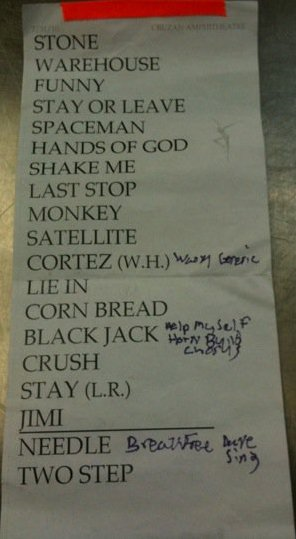 CRUZAN AMPHITHEATRE
STONE
WAREHOUSE
FUNNY
STAY OR LEAVE
SPACEMAN
HANDS OF GOD
SHAKE ME
LAST STOP
MONKEY
SATELLITE
CORTEZ (W.H.)
LIE IN
CORN BREAD
BLACK JACK Help Myself
Horn Build
CRUSH
STAY (L.R.)
JIMI
NEEDLE Breathfree Dave
Sing
TWO STEP